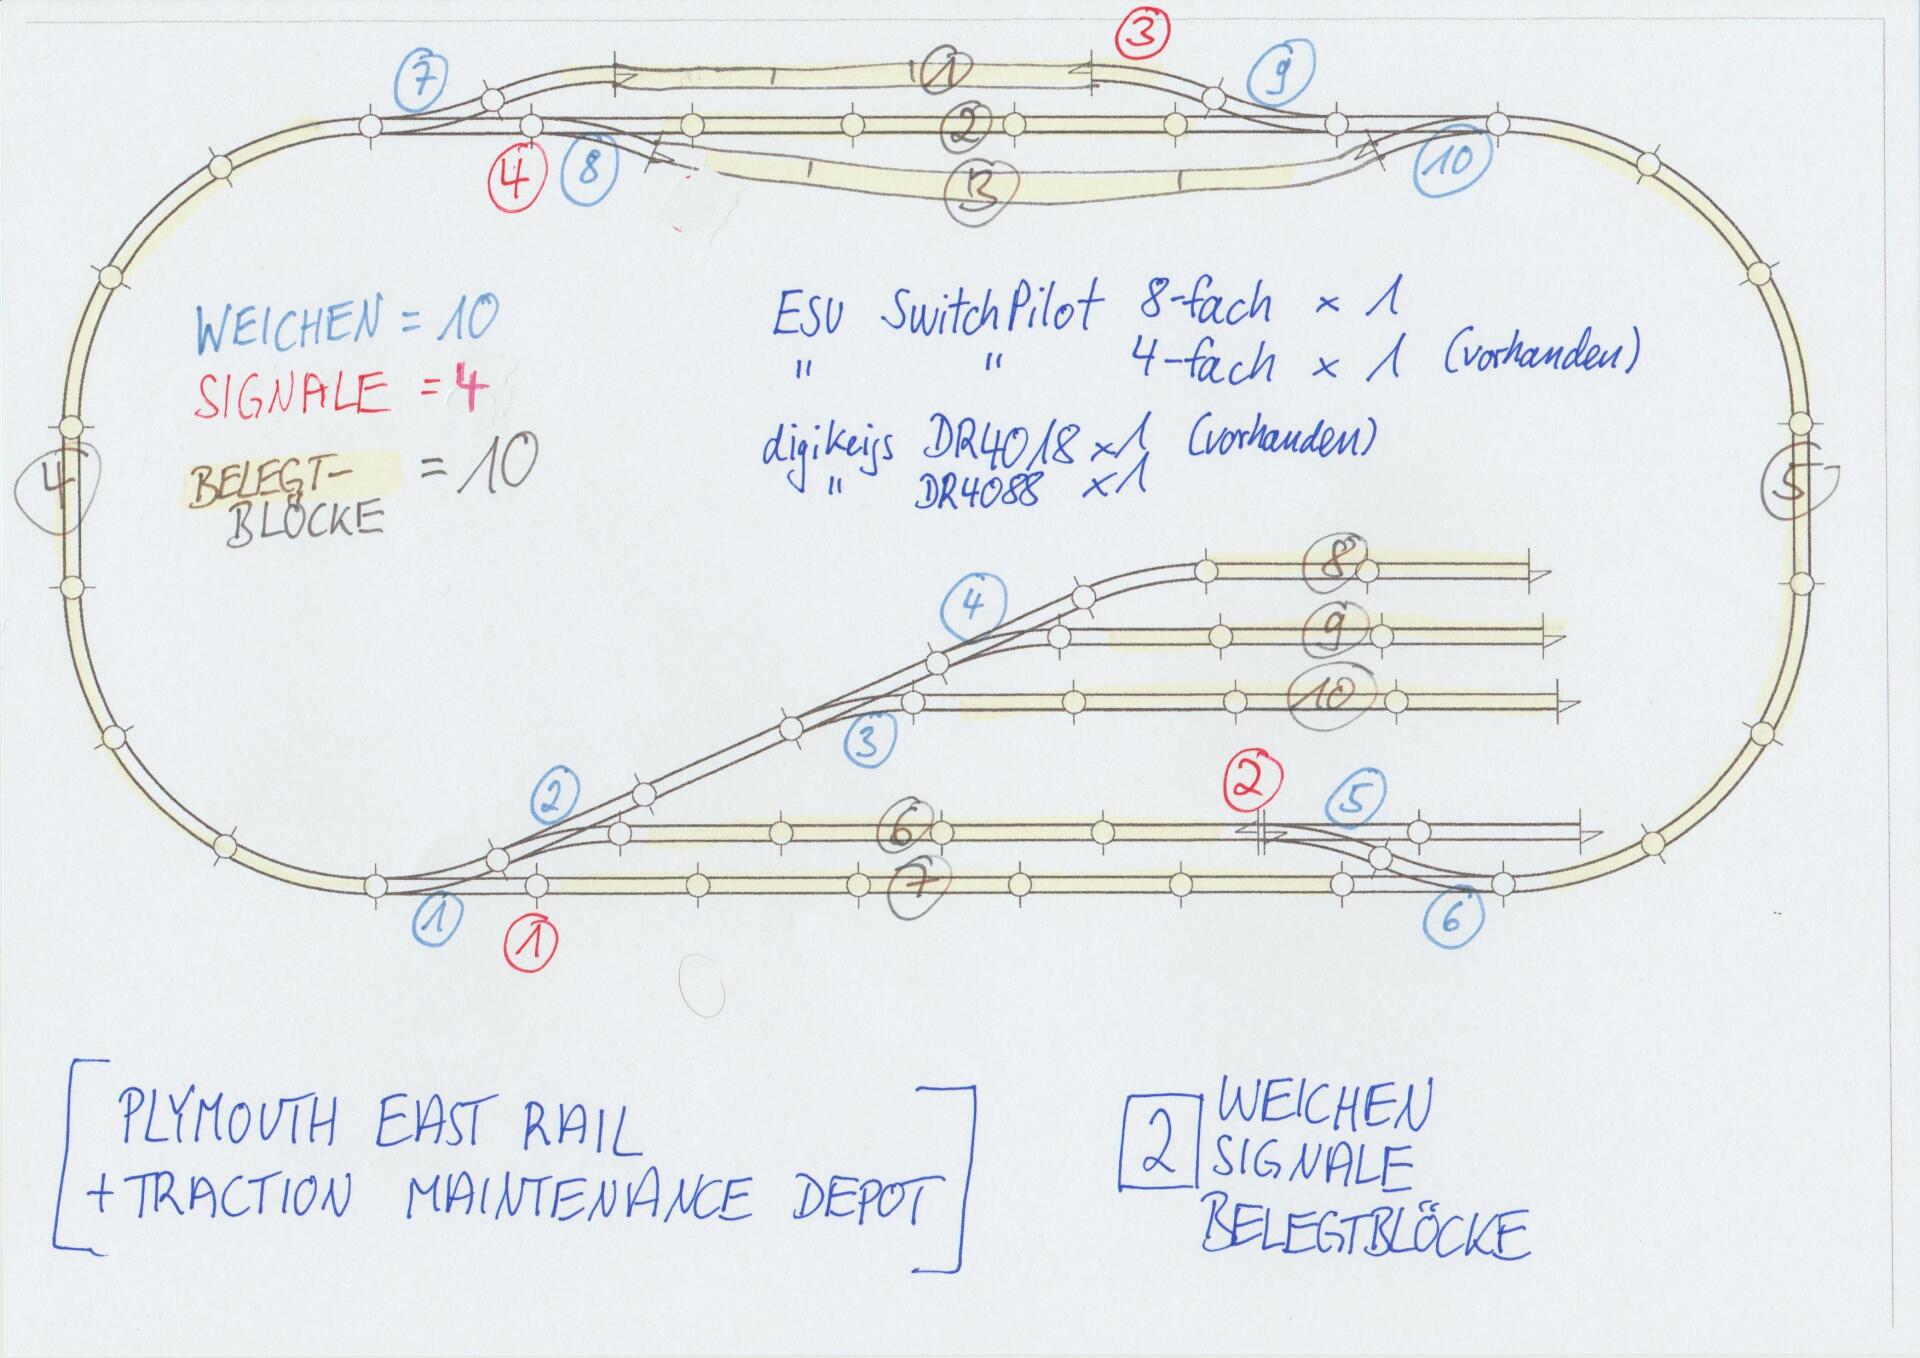 7
3
9
1
2
4
8
3
10
WEICHEN = 10
SIGNALE = 4
BELEGT- = 10
BLÖCKE
ESU SwitchPilot 8-fach x 1
" " 4-fach x 1 (vorhanden)
digikeijs DR4018 x1 (vorhanden)
" DR4088 x1
4
5
8
4
9
10
3
2
5
2
6
7
1
1
6
[PLYMOUTH EAST RAIL
+ TRACTION MAINTENANCE DEPOT]
2 WEICHEN
SIGNALE
BELEGTBLÖCKE